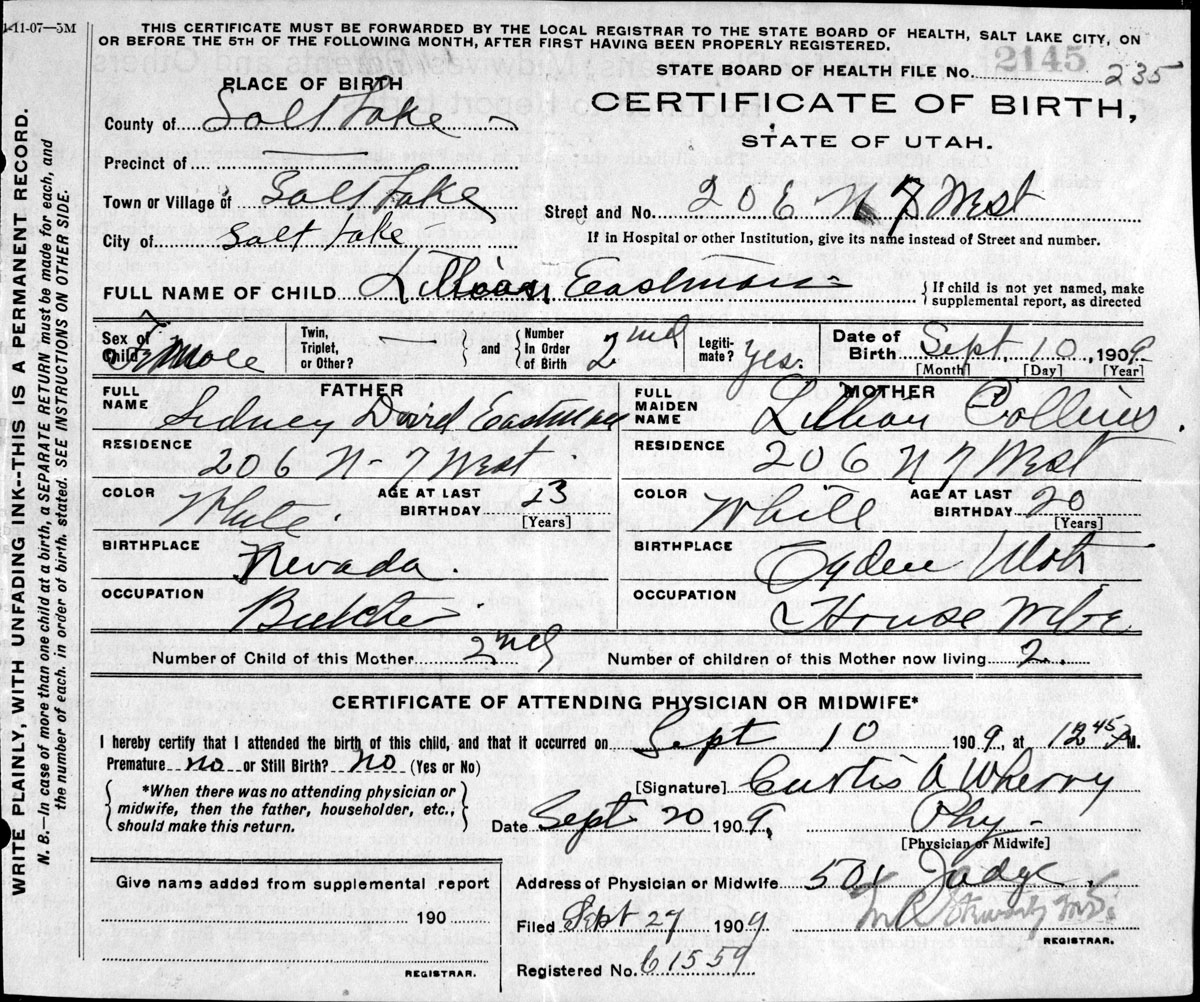 1-11-07—5M
THIS CERTIFICATE MUST BE FORWARDED BY THE LOCAL REGISTRAR TO THE STATE BOARD OF HEALTH, SALT LAKE CITY, ON
OR BEFORE THE 5TH OF THE FOLLOWING MONTH, AFTER FIRST HAVING BEEN PROPERLY REGISTERED.
STATE BOARD OF HEALTH FILE No. 2145 235
PLACE OF BIRTH
CERTIFICATE OF BIRTH,
STATE OF UTAH.
County of Salt Lake
Precinct of —
Town or Village of Salt Lake
Street and No. 206 N 7 West
City of Salt Lake
If in Hospital or other Institution, give its name instead of Street and number.
FULL NAME OF CHILD Lillian Eastman
{If child is not yet named, make
supplemental report, as directed
Sex of Child Female
Twin, Triplet, or Other? — } and { Number in Order of Birth 2nd
Legiti-mate? Yes.
Date of Birth Sept. 10, 1909
[Month] [Day] [Year]
FATHER
FULL NAME Sidney David Eastman
MOTHER
FULL MAIDEN NAME Lillian Collins.
RESIDENCE 206 N-7 West
RESIDENCE 206 N 7 West
COLOR White
AGE AT LAST BIRTHDAY 23 [Years]
COLOR White
AGE AT LAST BIRTHDAY 20 [Years]
BIRTHPLACE Nevada.
BIRTHPLACE Ogden Utah
OCCUPATION Butcher
OCCUPATION House Wife
Number of Child of this Mother 2nd
Number of children of this Mother now living 2.
CERTIFICATE OF ATTENDING PHYSICIAN OR MIDWIFE*
I hereby certify that I attended the birth of this child, and that it occurred on Sept 10 1909, at 12 45 P M.
Premature no or Still Birth? No (Yes or No)
{*When there was no attending physician or
midwife, then the father, householder, etc.,
should make this return.}
[Signature] Curtis A Wherry
Date Sept 20 1909,
Phy-
[Physician or Midwife]
Give name added from supplemental report
190
REGISTRAR.
Address of Physician or Midwife 501 Judge.
Filed Sept 27 1909
REGISTRAR.
Registered No. 61559
WRITE PLAINLY, WITH UNFADING INK--THIS IS A PERMANENT RECORD.
N. B.—In case of more than one child at a birth, a SEPARATE RETURN must be made for each, and
the number of each, in order of birth, stated. SEE INSTRUCTIONS ON OTHER SIDE.